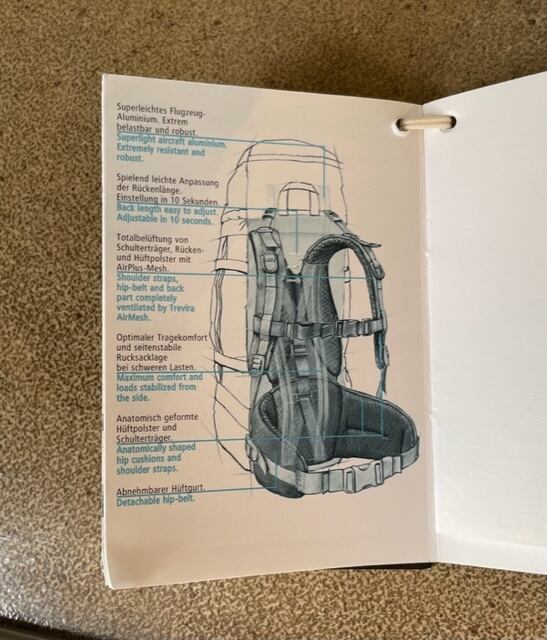 Superleichtes Flugzeug-
Aluminium. Extrem
belastbar und robust.
Superlight aircraft aluminium.
Extremely resistant and
robust.
Spielend leichte Anpassung
der Rückenlänge.
Einstellung in 10 Sekunden.
Back length easy to adjust.
Adjustable in 10 seconds.
Totalbelüftung von
Schulterträger, Rücken-
und Hüftpolster mit
AirPlus-Mesh.
Shoulder straps,
hip-belt and back
part completely
ventilated by Trevira
AirMesh.
Optimaler Tragekomfort
und seitenstabile
Rucksacklage
bei schweren Lasten.
Maximum comfort and
loads stabilized from
the side.
Anatomisch geformte
Hüftpolster und
Schulterträger.
Anatomically shaped
hip cushions and
shoulder straps.
Abnehmbarer Hüftgurt.
Detachable hip-belt.